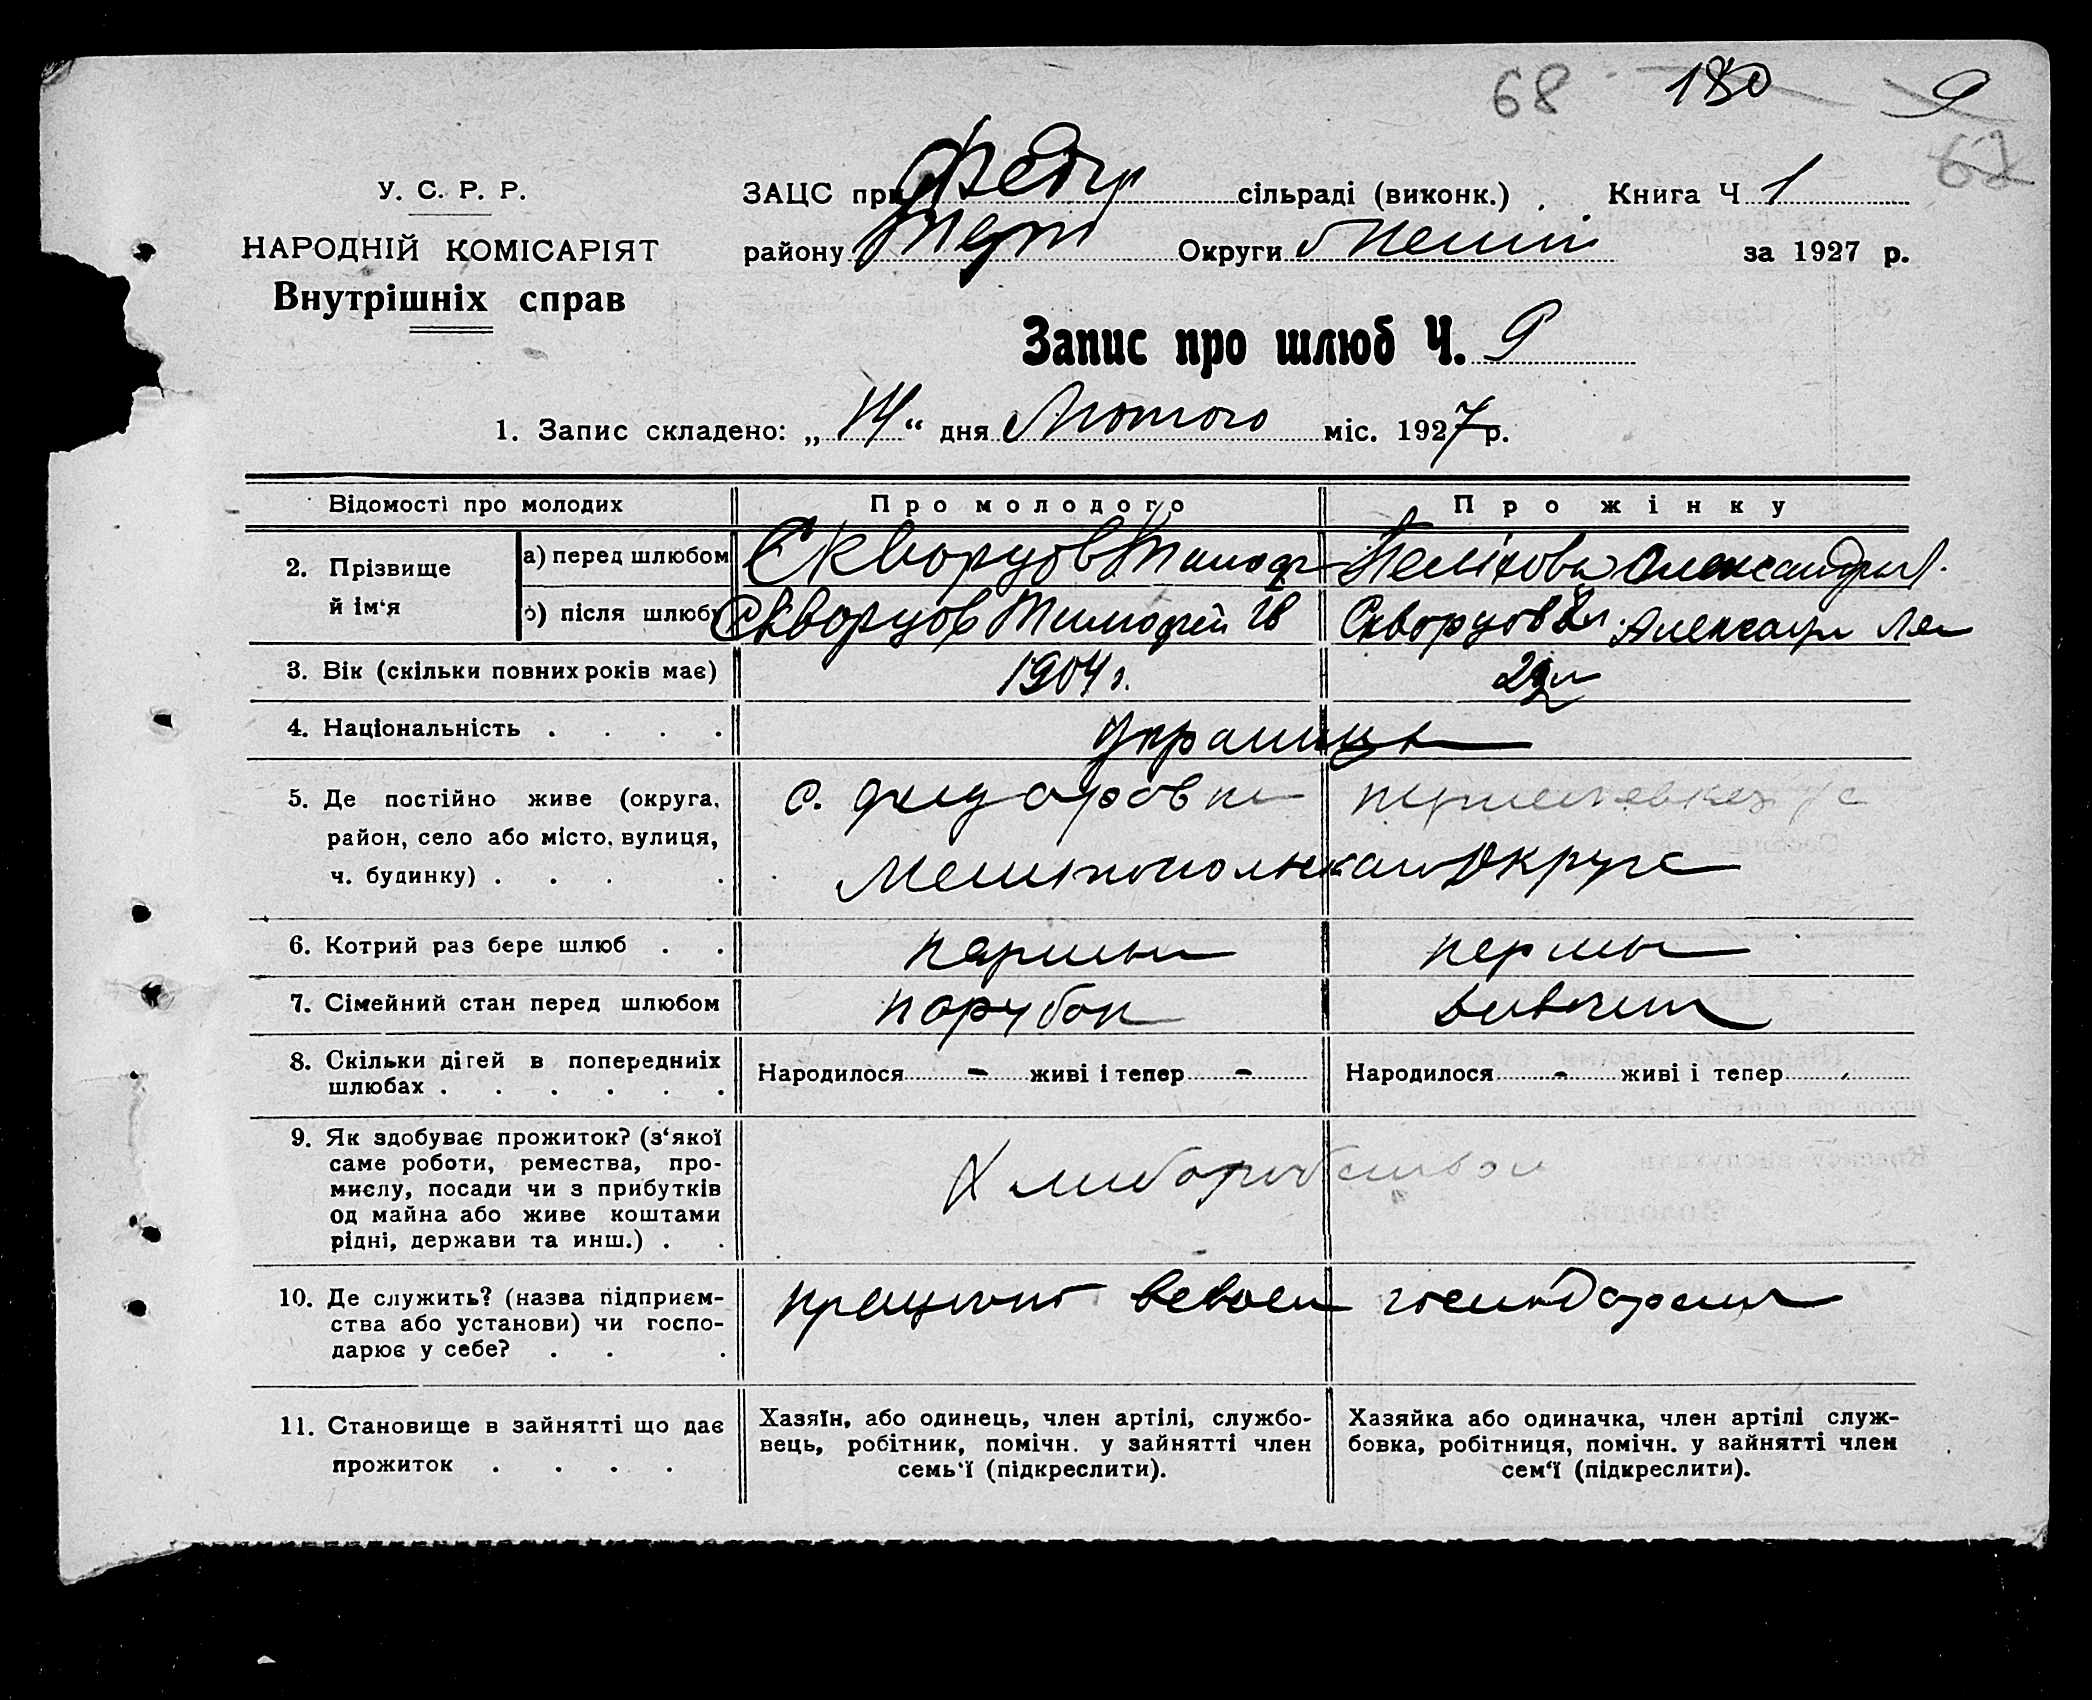 68 180 9
62
У. С. Р. Р.
НАРОДНІЙ КОМІСАРІЯТ
Внутрішніх справ
ЗАЦС при Федор сільраді (виконк.) . Книга Ч 1
району Терп Округи Меліт за 1927 р.
Запис про шлюб Ч. 9
1. Запис складено: „ 14 “ дня Лютого міс. 1927 р.
Відомості про молодих Про молодого Про жінку
2. Прізвище й ім‘я
а) перед шлюбом Скворцов Тимоф Олександра
б) після шлюбу Скворцов Тимофей Ів Скворцова Александра
3. Вік (скільки повних років має) 1904 г.
4. Національність . . . . украинцы
5. Де постійно живе (округа, район, село або місто, вулиця, ч. будинку) . . . .
с. Федоровки
Мелитопольськои Округе
6. Котрий раз бере шлюб . . первый первы
7. Сімейний стан перед шлюбом парубок дивчина
8. Скільки дітей в попередниіх шлюбах . . . . . .
Народилося - живі і тепер - Народилося - живі і тепер
9. Як здобуває прожиток? (з‘якої саме роботи, ремества, промислу, посади чи з прибутків од майна або живе коштами рідні, держави та инш.) . .
Хлиборобством
10. Де служить? (назва підприємства або установи) чи господарює у себе? . . .
працюют в своем господарстви
11. Становище в зайнятті що дає прожиток . . . .
Хазяїн, або одинець, член артілі, службовець, робітник, помічн. у зайнятті член семь‘ї (підкреслити).
Хазяйка або одиначка, член артілі службовка, робітниця, помічн. у зайнятті член сем‘ї (підкреслити).